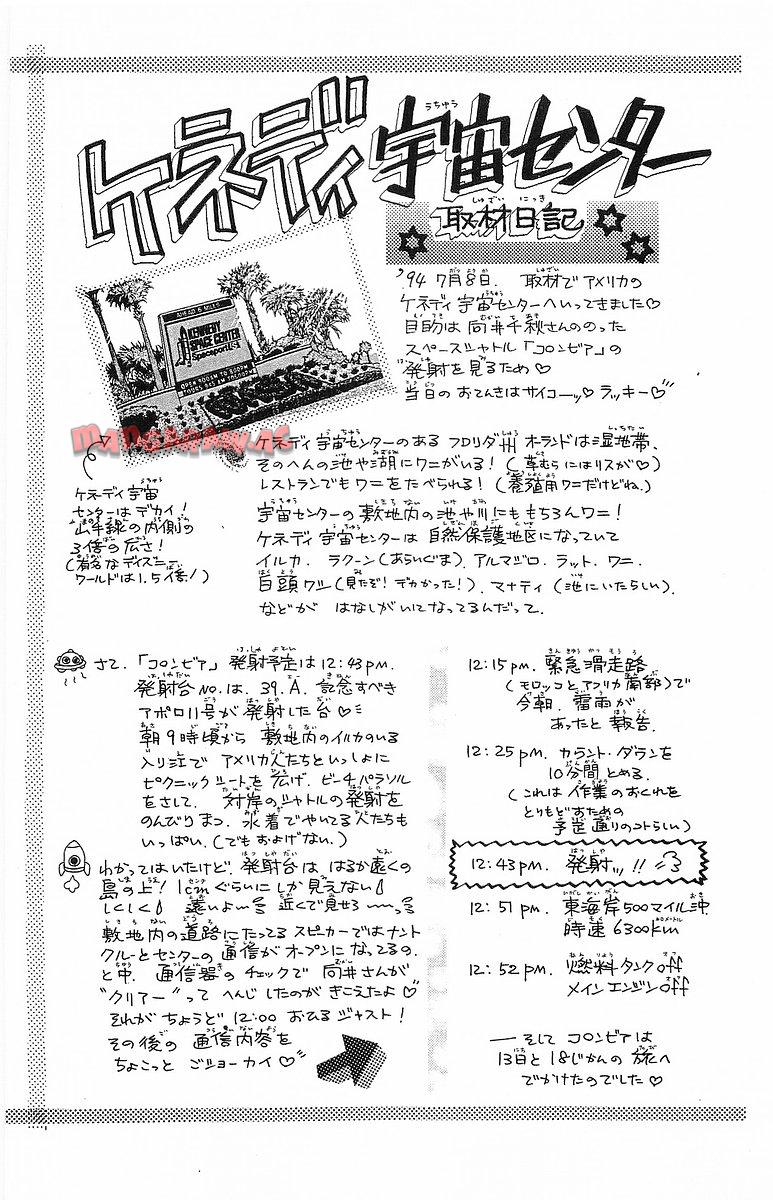 ケネディ宇宙センター
取材日記
'94 7月8日. 取材でアメリカの
ケネディ宇宙センターへいってきました♡
目的は向井千秋さんののった
スペースシャトル「コロンビア」の
発射を見るため♡
当日のおてんきはサイコーッ♡ラッキー♡
KENNEDY
SPACE CENTER
Spaceport USA
MANGARAW.AC
ケネディ宇宙
センターはデカイ!
山手線の内側の
3倍の広さ!
(有名なディズニー
ワールドは1.5倍!)
ケネディ宇宙センターのあるフロリダ州オーランドは湿地帯、
そのへんの池や湖にワニがいる!(草むらにはリスが♡)
レストランでもワニをたべられる!(養殖用ワニだけどね.)
宇宙センターの敷地内の池や川にももちろんワニ!
ケネディ宇宙センターは自然保護地区になっていて
イルカ. ラクーン(あらいぐま). アルマジロ. ラット. ワニ.
白頭ワシ(見たぞ!デカかった!). マナティ(池にいたらしい).
などが はなしがいになってるんだって.
さて.「コロンビア」発射予定は12:43pm.
発射台No.は.39.A. 記念すべき
アポロ11号が発射した台♡
朝9時頃から敷地内のイルカのいる
入り江でアメリカ人たちといっしょに
ピクニックシートを広げ.ビーチパラソル
をさして. 対岸のシャトルの発射を
のんびりまつ.水着でやいてる人たちも
いっぱい.(でもおよげない.)
わかってはいたけど.発射台ははるか遠くの
島の上!1cmぐらいにしか見えない
しくしく 遠いよーー 近くで見せろーーっ
敷地内の道路にたってるスピーカーではナント
クルーとセンターの通信がオープンになってるの.
と中.通信器のチェックで向井さんが
"クリアー"ってへんじしたのがきこえたよ♡
それがちょうど12:00おひるジャスト!
その後の通信内容を
ちょこっとごショーカイ♡
12:15pm. 緊急滑走路
(モロッコとアフリカ南部)で
今朝.雷雨が
あったと報告.
12:25pm. カウント・ダウンを
10分間とめる.
(これは作業のおくれを
とりもどすための
予定通りのコトらしい)
12:43pm. 発射ッッ!!
12:51pm. 東海岸500マイル沖
時速6300km
12:52pm. 燃料タンクoff
メインエンジンoff
――そしてコロンビアは
13日と18じかんの旅へ
でかけたのでした♡